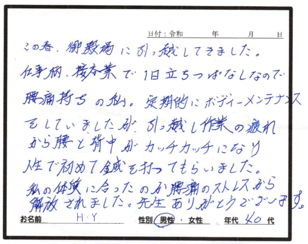 日付：令和　年　月　日
この春、御殿場に引っ越してきました。
仕事柄、接客業で1日立ちっぱなしなので
腰痛持ちの私。定期的にボディーメンテナンス
をしていましたが、引っ越し作業の疲れ
から腰と背中がカッチカッチになり
人生で初めて鍼を打ってもらいました。
私の体質に合ったのか腰痛のストレスから
解放されました。先生ありがとうございます。
お名前 H.Y 性別 男性・女性 年代 40代